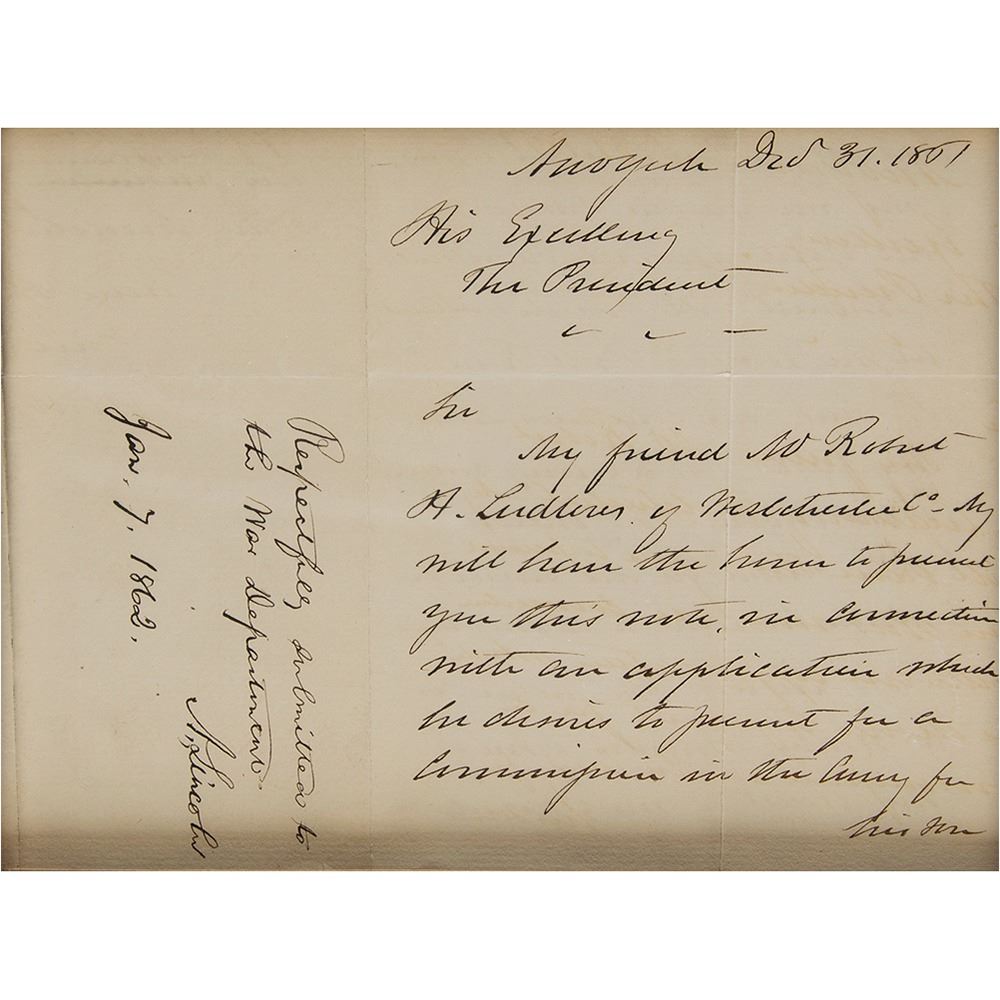 New York Dec 31. 1861
His Excellency
The President
Sir
My friend Mr Robert
H. Ludlow of Westchester Co. NY
will have the honor to present
you this note, in connection
with an application which
he desires to present for a
Commission in the Army for
his son
Respectfully submitted to
the War Department
A. Lincoln
Jan. 7. 1862.